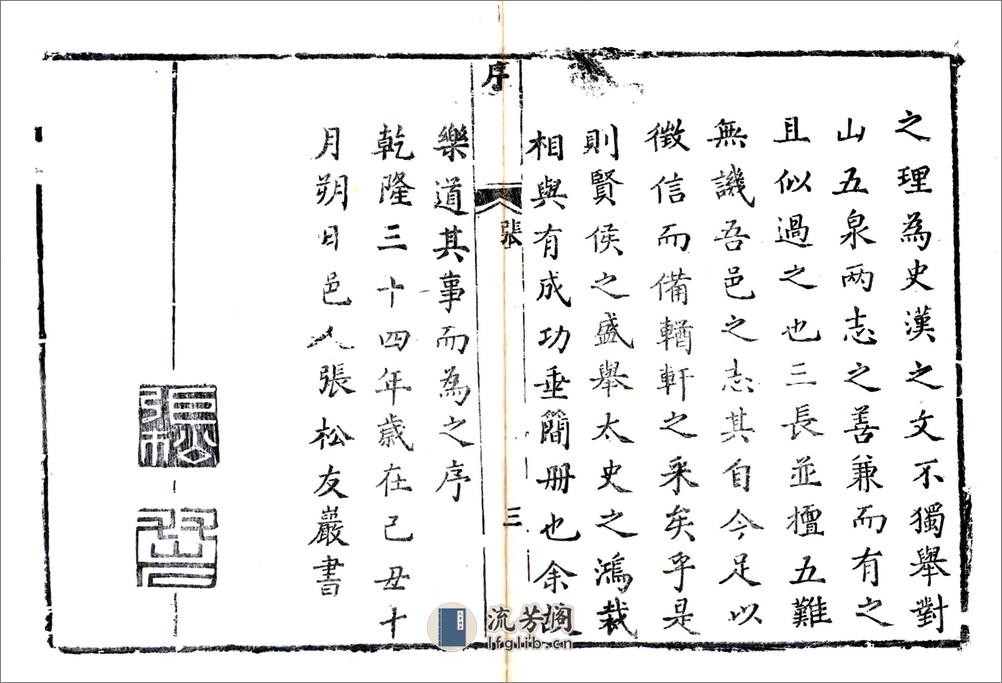 之理為史漢之文不獨舉對
山五泉两志之善兼而有之
且似過之也三長並擅五難
無譏吾邑之志其自今足以
徵信而備輶軒之采矣乎是
則賢侯之盛舉太史之鴻裁
相與有成功垂簡册也余
序
張
三
樂道其事而為之序
乾隆三十四年歲在己丑十
月朔日邑人張松友巖書
張松
流芳阁
lfglib.cn